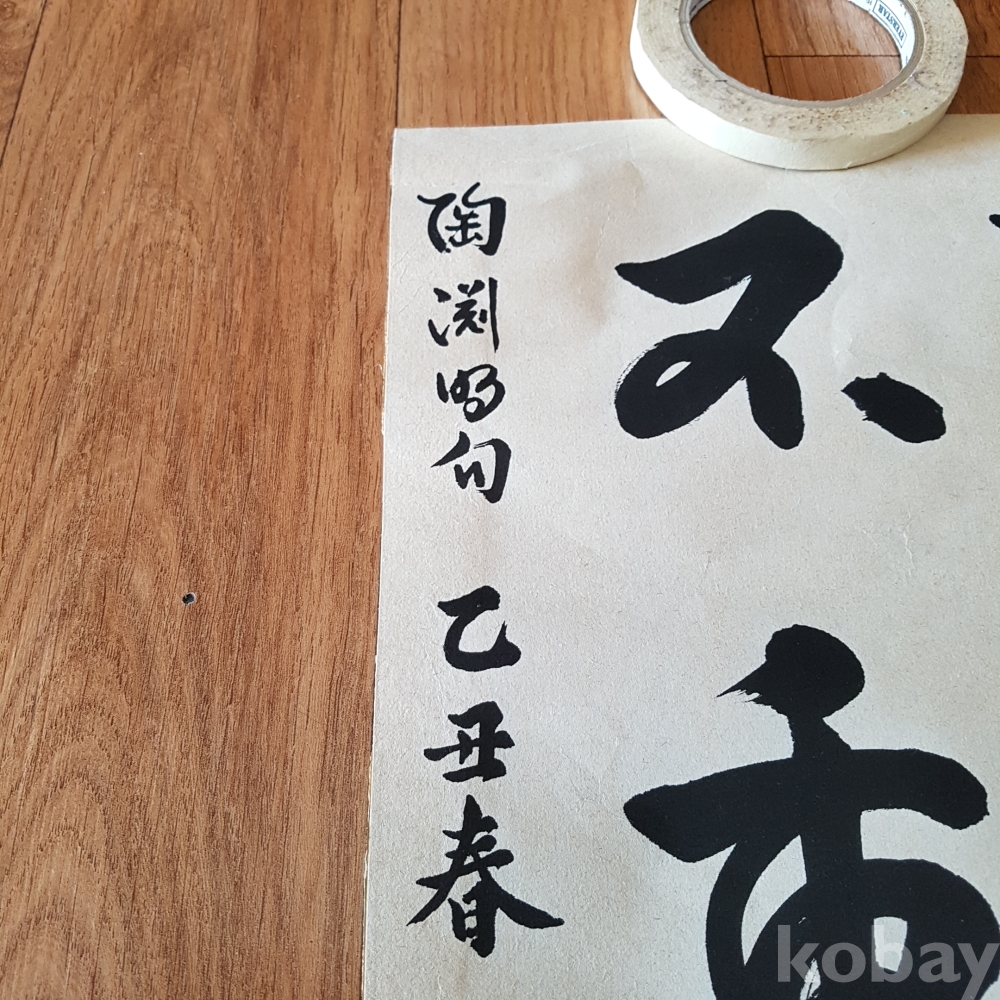 不重
陶淵明句 乙丑春
EVERSTAR
kobay